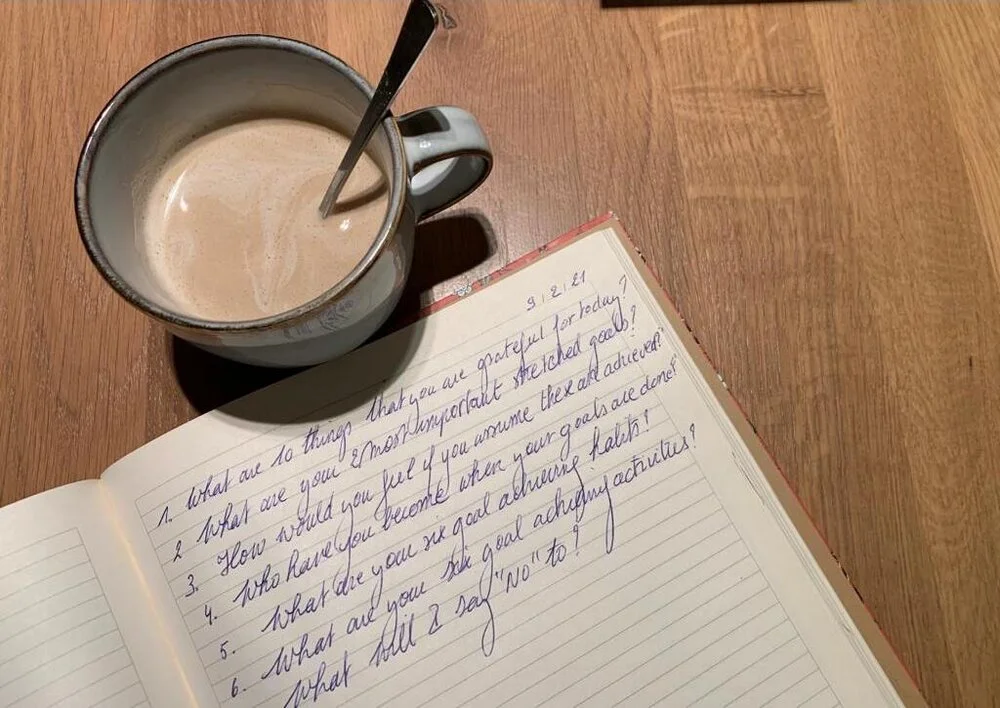 9|2|21
1. What are 10 things that you are grateful for today?
2 What are your 2 most important stretched goals?
3. How would you feel if you assume these are achieved?
4. Who have you become when your goals are done?
5. What are your six goal achieving habits?
6. What are your six goal achieving activities?
What will I say "No" to?